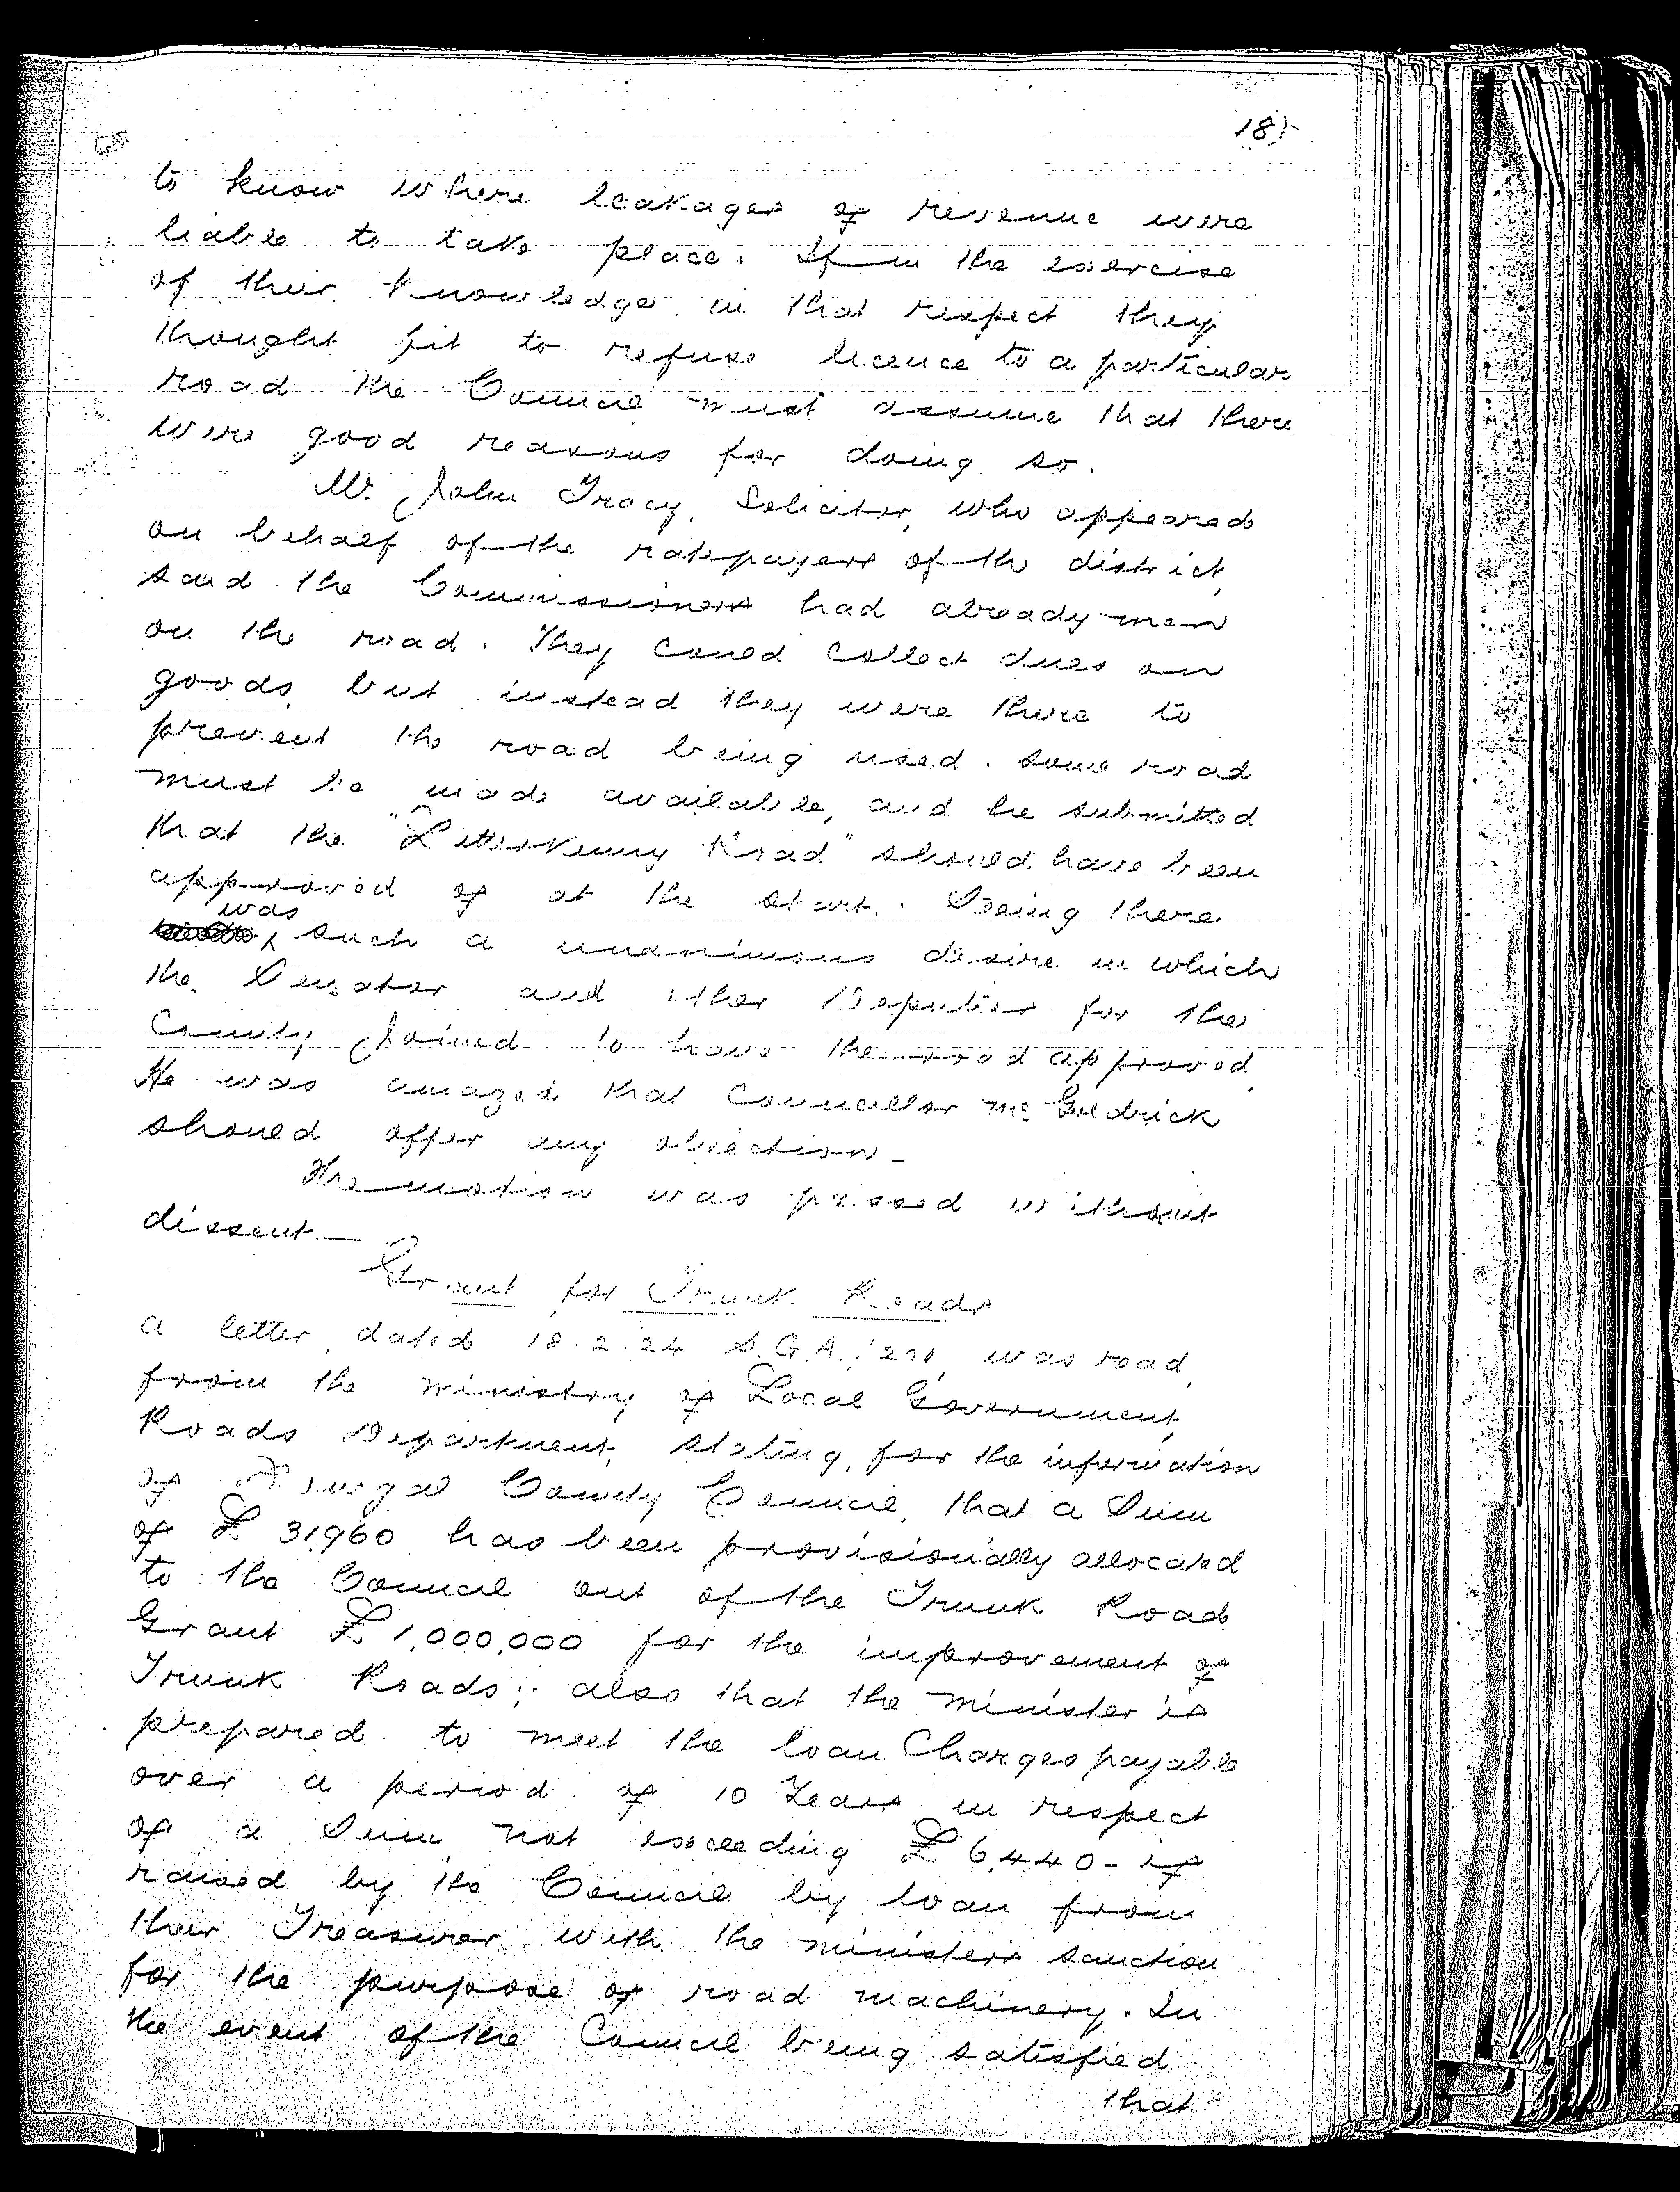 to know where leakages of revenue were
liable to take place. If in the exercise
of their knowledge in that respect they
thought fit to refuse licence to a particular
road the Council must assume that there
were good reasons for doing so.
Mr. John Tracy, Solicitor, who appeared
on behalf of the ratepayers of the district,
said the Commissioners had already men
on the road. They could collect dues on
goods, but instead they were there to
prevent the road being used. Some road
must be made available, and he submitted
that the "Letterkenny Road" should have been
approved of at the start. Seeing there
was
such a unanimous desire in which
the Senator and other Deputies for the
County joined to have the road approved
He was amazed that Councillor McGoldrick
should offer any objection -
The motion was passed without
dissent. —
Grant for Trunk Roads
a letter, dated 18.2.24 S.G.A. was read,
from the Ministry of Local Government,
Roads Department, stating, for the information
of Donegal County Council, that a Sum
of £ 31,960 has been provisionally allocated
to the Council out of the Trunk Road
Grant £ 1,000,000 for the improvement of
Trunk Roads; also that the Minister is
prepared to meet the loan Charges payable
over a period of 10 Years in respect
of a Sum not exceeding £ 6,440 - if
raised by the Council by loan from
their Treasurer with the ministers sanction
for the purpose of road machinery. In
the event of the Council being satisfied
that